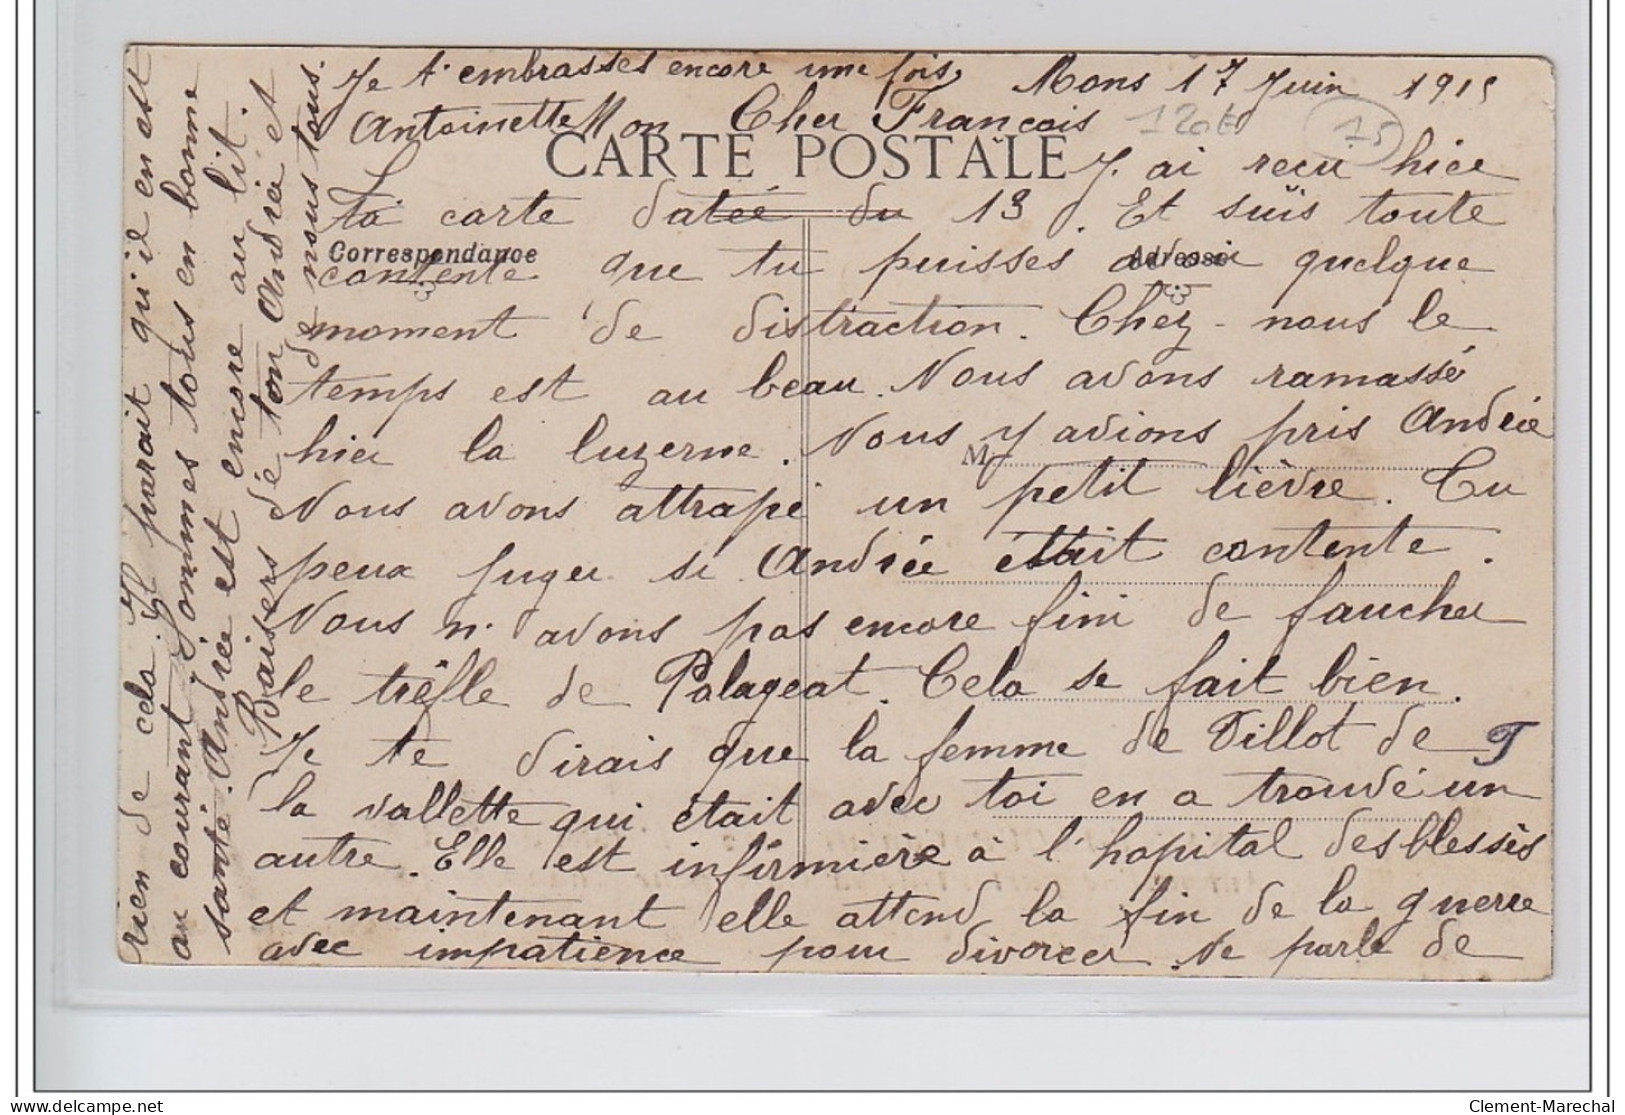 Je t'embrasses encore une fois,
Antoinette
Mons 17 Juin 1915
Mon Cher François
CARTE POSTALE
Correspondance
Adresse
M
J'ai reçu hier
ta carte datée du 13. Et suis toute
contente que tu puisses avoir quelque
moment de distraction. Chez nous le
temps est au beau. Nous avons ramassé
hier la luzerne. Nous y avions pris Andrée
Nous avons attrapé un petit lièvre. Tu
peux juger si Andrée était contente.
Nous n'avons pas encore fini de faucher
le trèfle de Palageat. Cela se fait bien.
Je te dirais que la femme de Tillot de
la vallette qui était avec toi en a trouvé un
autre. Elle est infirmière à l'hopital des blessés
et maintenant elle attend la fin de la guerre
avec impatience pour divorcer. Ne parle de
rien de cela. Il parait qu'il en est
au courant. Sommes tous en bonne
santé. Andrée est encore au lit.
Baisers de ton Andrée et
de nous tous.
T
120f
75
delcampe.net
Clement-Marechal